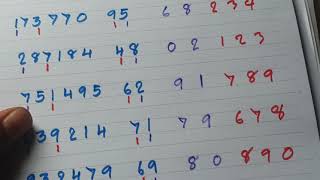 173770 95 68 234
287184 48 02 123
751495 62 91 789
39214 71 79 678
932479 69 80 890